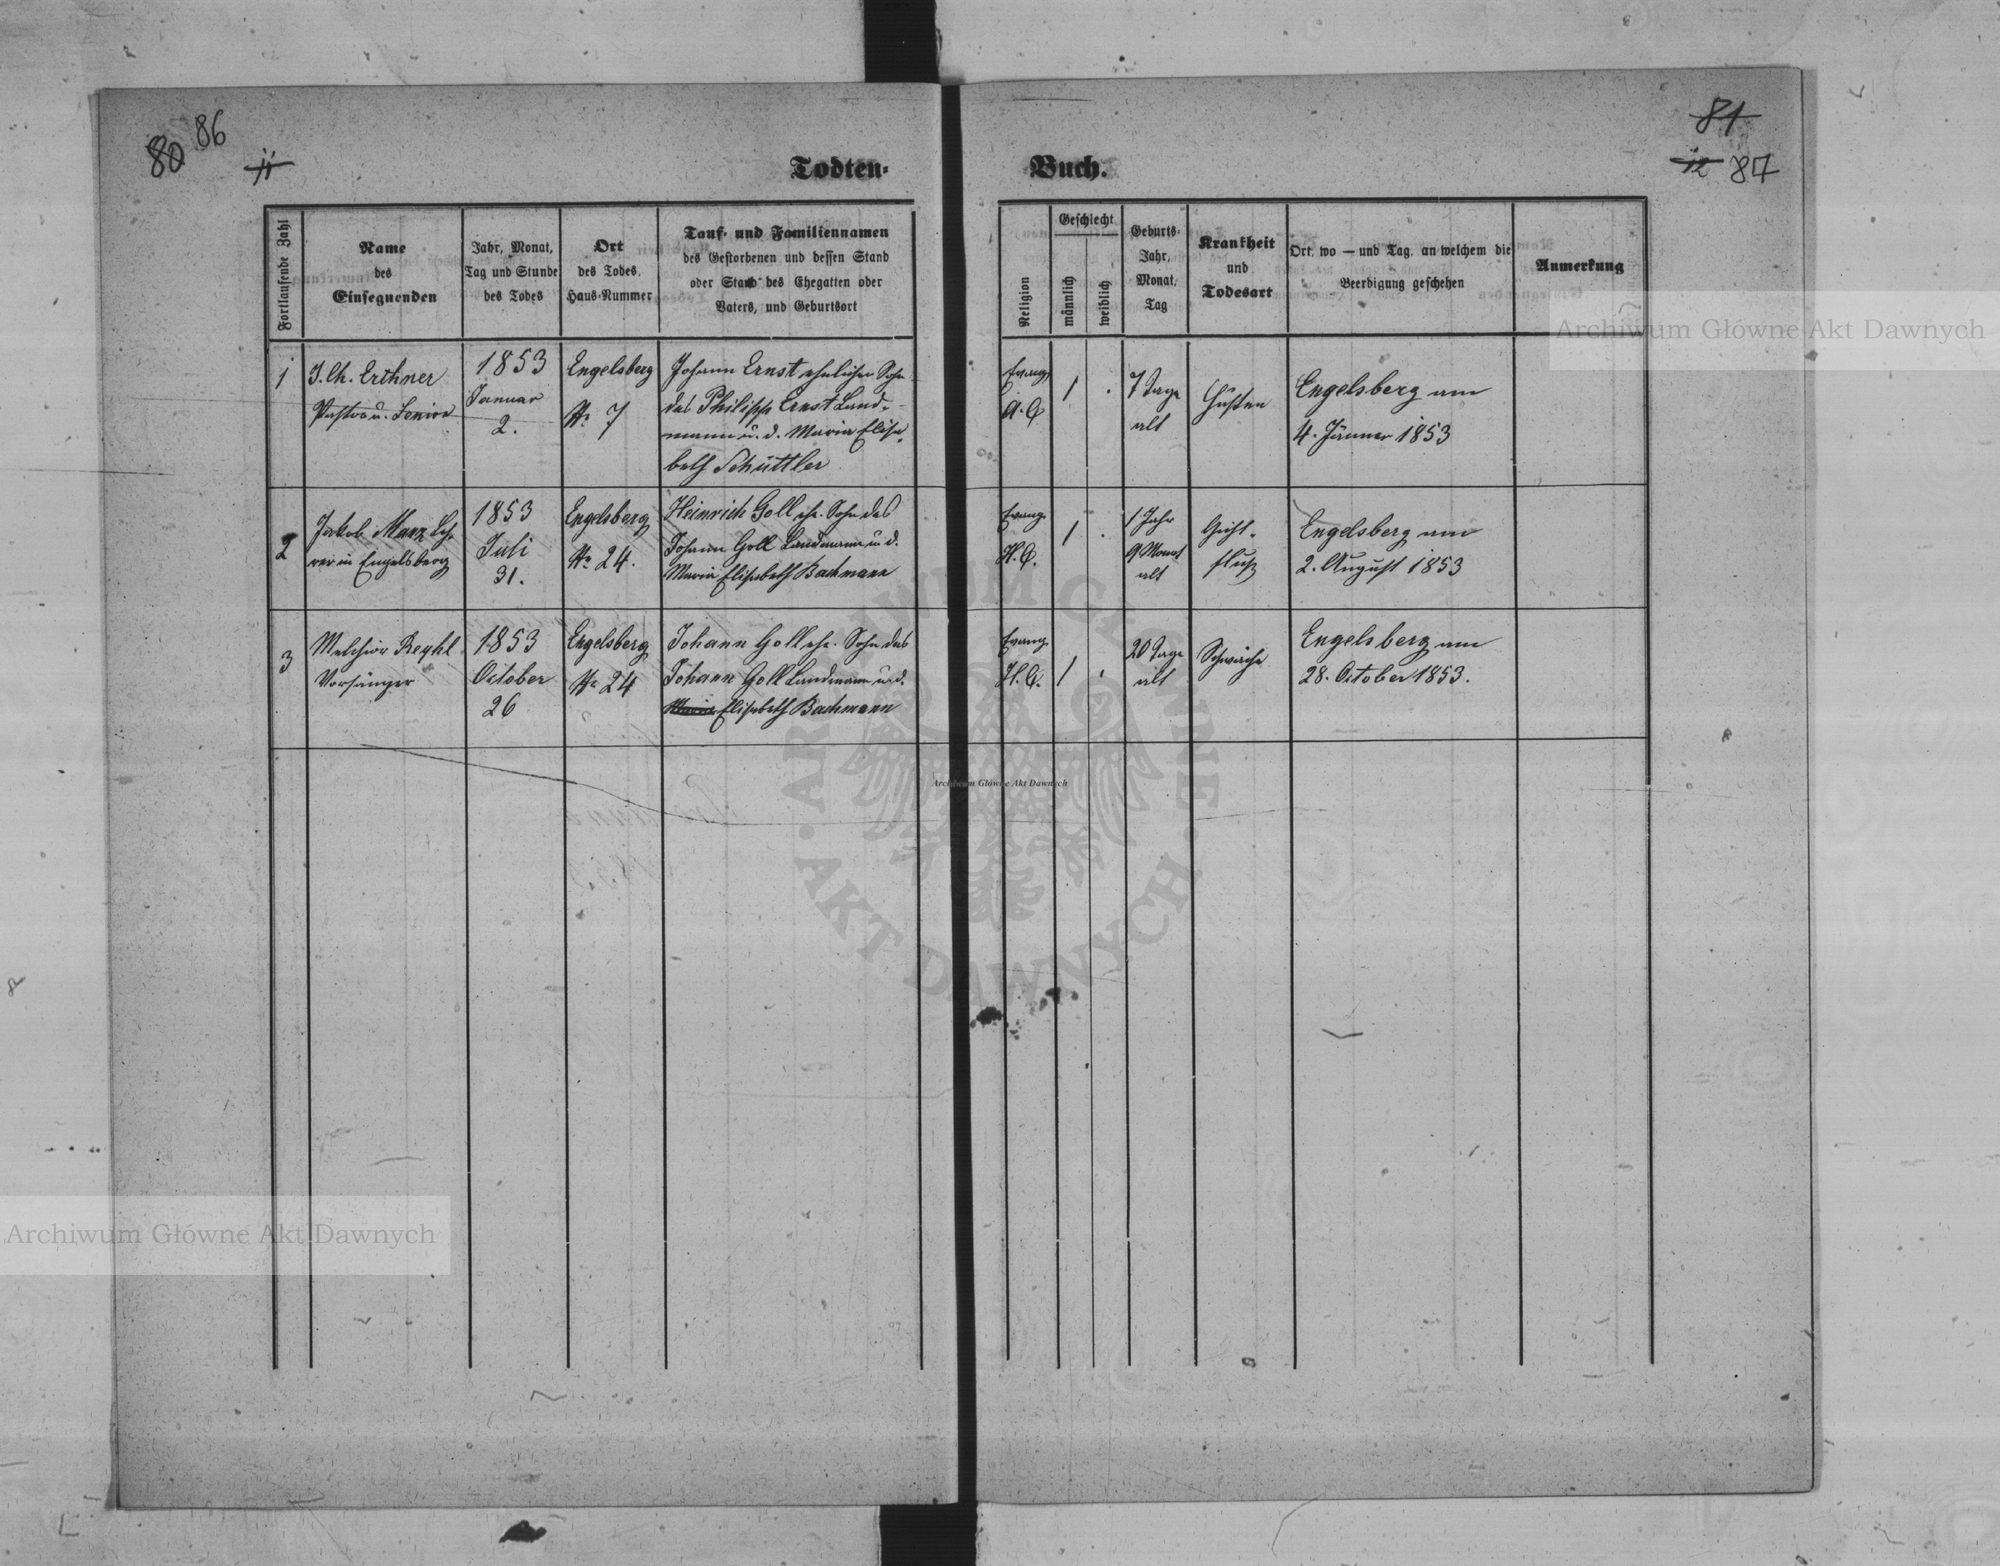 80 86
11
81
12 87
Todten-
Buch.
Fortlaufende Zahl
Name
des
Einsegnenden
Jahr, Monat,
Tag und Stunde
des Todes
Ort
des Todes,
Haus-Nummer
Tauf- und Familiennamen
des Gestorbenen und dessen Stand
oder Stand des Ehegatten oder
Vaters, und Geburtsort
Religion
Geschlecht
männlich
weiblich
Geburts-
Jahr,
Monat,
Tag
Krankheit
und
Todesart
Ort, wo — und Tag, an welchem die
Beerdigung geschehen
Anmerkung
1
J. Ch. Erthner
Pastor u. Senior
1853
Januar
2.
Engelsberg
No 7
Johann Ernst ehelicher Sohn
des Philipp Ernst Land-
mann u. d. Maria Elisa-
beth Schüttler
Evang.
A. C.
1
7 Tage
alt
Husten
Engelsberg am
4. Jänner 1853
2
Jakob Manz Leh-
rer in Engelsberg
1853
Juli
31.
Engelsberg
No 24.
Heinrich Goll ehe. Sohn des
Johann Goll Landmann u. d.
Maria Elisabeth Bachmann
Evang.
H. C.
1
1 Jahr
9 Monat
alt
Gicht-
fluß
Engelsberg am
2. August 1853
3
Melchior Reyhl
Vorsänger
1853
October
26
Engelsberg
No 24
Johann Goll ehe. Sohn des
Johann Goll Landmann u. d.
Maria Elisabeth Bachmann
Evang.
H. C.
1
20 Tage
alt
Schwäche
Engelsberg am
28. October 1853.
Archiwum Główne Akt Dawnych
Archiwum Główne Akt Dawnych
Archiwum Główne Akt Dawnych
ARCHIWUM GŁÓWNE
AKT DAWNYCH